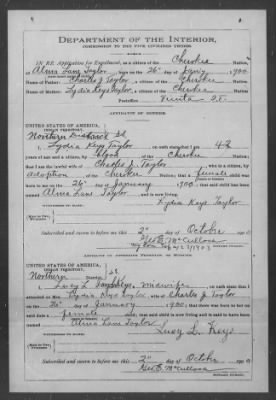 DEPARTMENT OF THE INTERIOR,
COMMISSION TO THE FIVE CIVILIZED TRIBES.
IN RE Application for Enrollment, as a citizen of the Cherokee Nation,
of Alma Lane Taylor, born on the 26 day of Jan'y, 1900
Name of Father: Charles J. Taylor a citizen of the Cherokee Nation.
Name of Mother: Lydia Keys Taylor a citizen of the Cherokee Nation.
Postoffice Vinita I.T.
AFFIDAVIT OF MOTHER.
UNITED STATES OF AMERICA,
INDIAN TERRITORY,
Northern District
I, Lydia Keys Taylor, on oath state that I am 42
years of age and a citizen, by blood of the Cherokee Nation;
that I am the lawful wife of Charles J. Taylor, who is a citizen, by
adoption of the Cherokee Nation; that a female child was
born to me on the 26 day of January 1900; that said child has been
named Alma Lane Taylor, and is now living.
Lydia Keys Taylor
Subscribed and sworn to before me this 2" day of October
Geo. E. McCulloch
AFFIDAVIT OF ATTENDING PHYSICIAN, OR MIDWIFE.
UNITED STATES OF AMERICA,
INDIAN TERRITORY,
Northern District
I, Lucy L. Keys, a midwife, on oath state that I
attended on Mrs. Lydia Keys Taylor, wife of Charles J Taylor
on the 26 day of January, 1900; that there was born to her on said
date a female child; that said child is now living and is said to have been
named Alma Lane Taylor
Lucy L. Keys
Subscribed and sworn to before me this 2" day of October
Geo. E. McCulloch